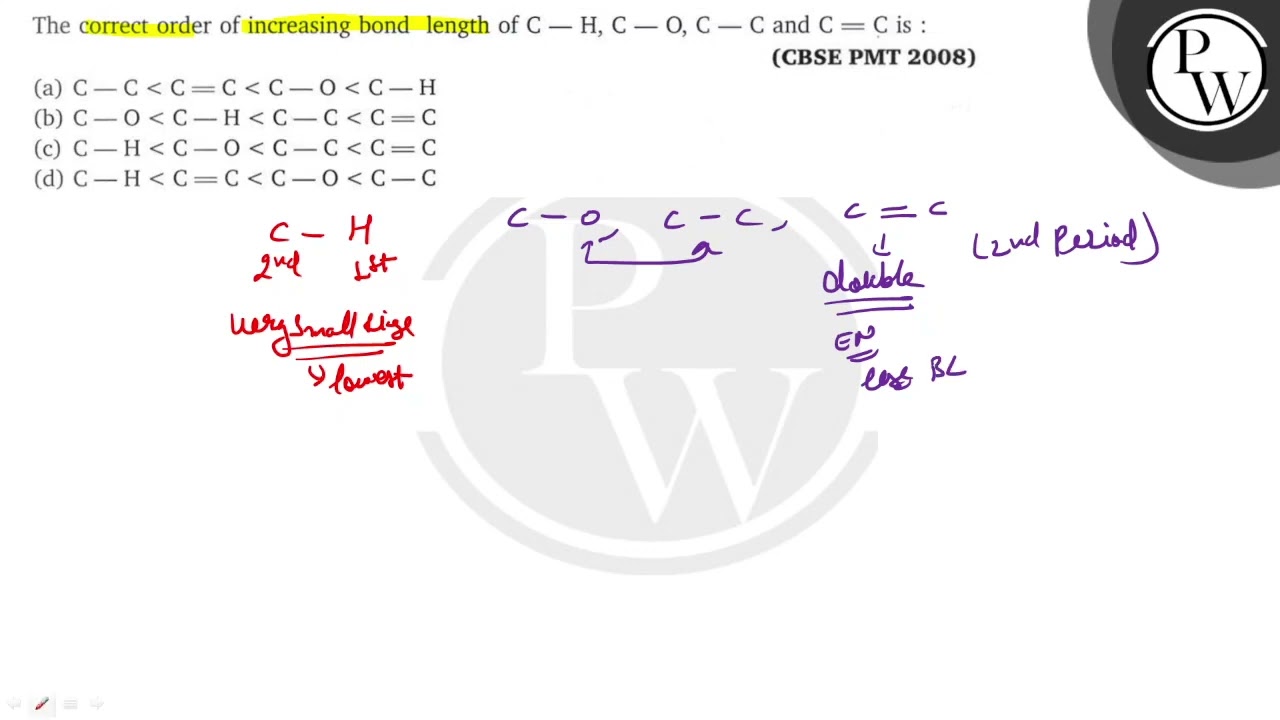 The correct order of increasing bond length of C — H, C — O, C — C and C = C is :
(CBSE PMT 2008)
(a) C — C < C = C < C — O < C — H
(b) C — O < C — H < C — C < C = C
(c) C — H < C — O < C — C < C = C
(d) C — H < C = C < C — O < C — C
C — H
2nd 1st
very small size
↳ lowest
C — O, C — C, C = C
(2nd Period)
double
EN
less BL
P
W
P
W